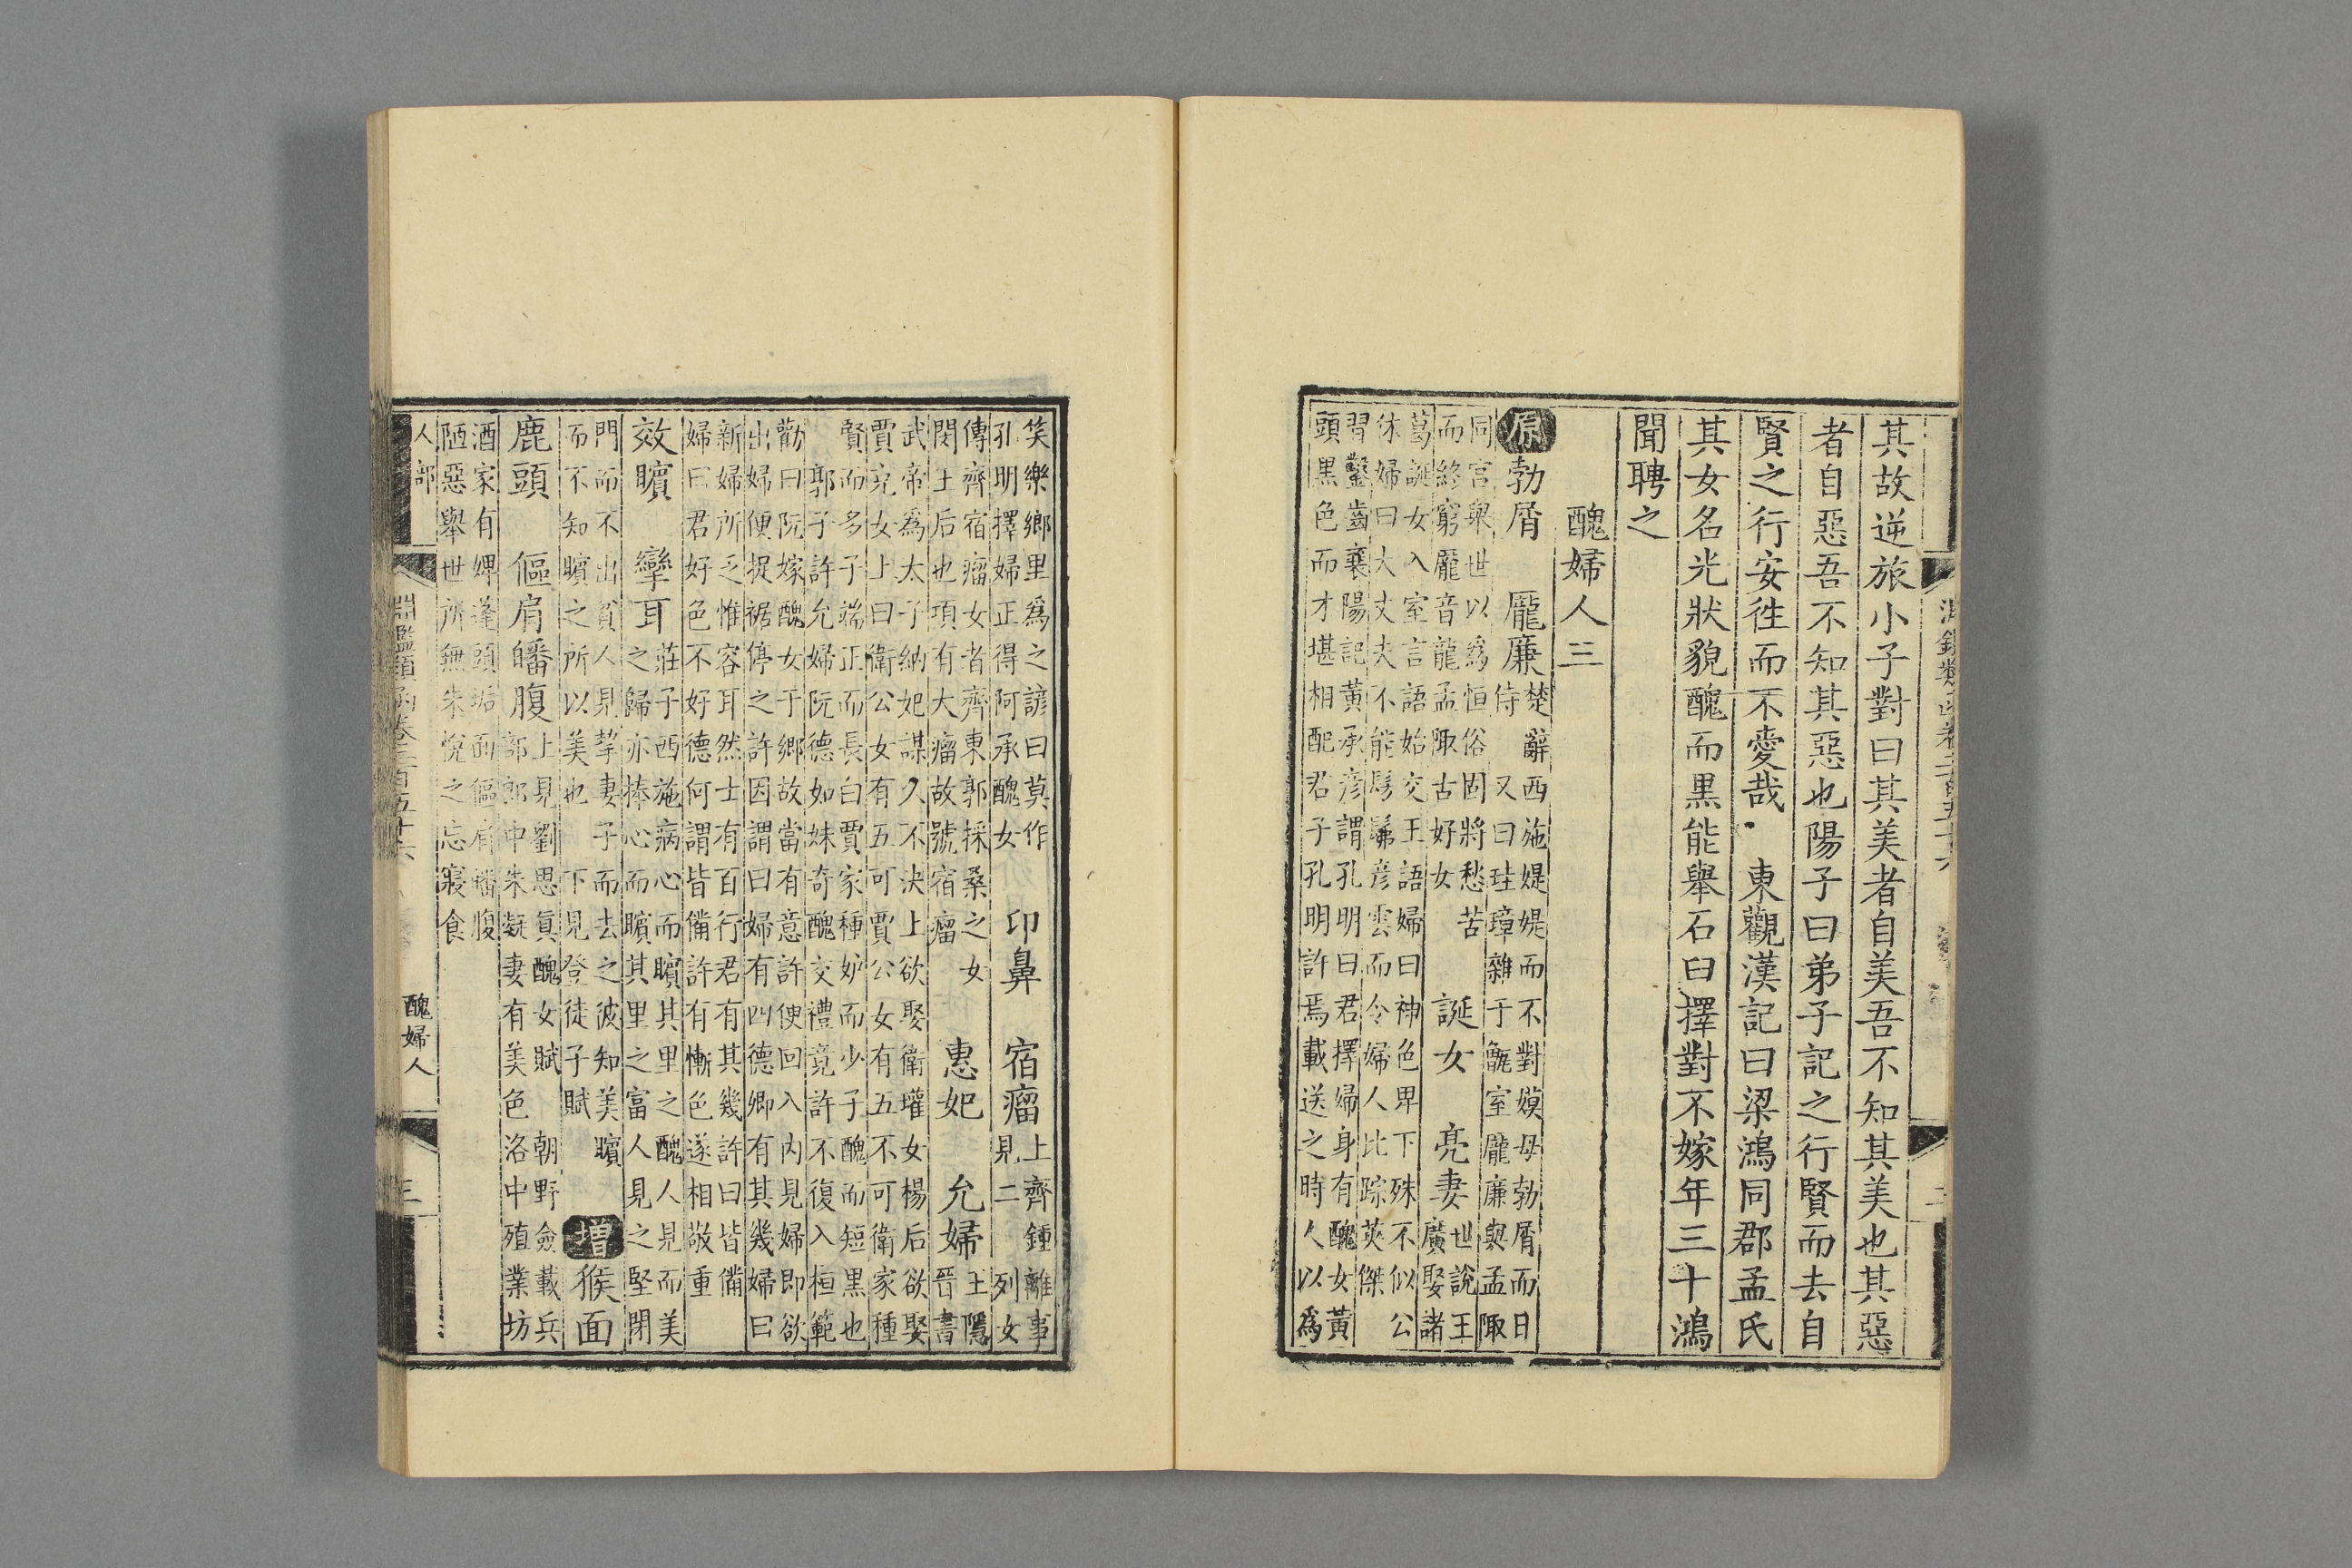 其故逆旅小子對曰其美者自美吾不知其美也其惡
者自惡吾不知其惡也陽子曰弟子記之行賢而去自
賢之行安徃而不愛哉 東觀漢記曰梁鴻同郡孟氏
其女名光狀貌醜而黑能舉石臼擇對不嫁年三十鴻
聞聘之
醜婦人三
原 勃屑 龎廉 楚辭 西施媞媞而不對嫫母勃屑而日
侍 又曰珪璋雜于甑室龎廉與孟陬
同宫舉世以爲恒俗固將愁苦
而終窮龎音龍孟陬古好女
誕女 亮妻 世說王
廣娶諸
葛誕女入室言語始交王語婦曰神色卑下殊不似公
休婦曰大丈夫不能髣髴彦雲而令婦人比踪英傑
習鑿齒襄陽記黄承彦謂孔明曰君擇婦身有醜女黄
頭黑色而才堪相配君子孔明許焉載送之時人以爲
笑樂鄉里爲之諺曰莫作
孔明擇婦正得阿承醜女
印鼻 宿瘤 上齊鍾離事
見二 列女
傳齊宿瘤女者齊東郭採桑之女
閔王后也項有大瘤故號宿瘤
惠妃 允婦 王隱
晉書
武帝爲太子納妃謀久不決上欲娶衛瓘女楊后欲娶
賈充女上曰衛公女有五可賈公女有五不可衛家種
賢而多子端正而長白賈家種妒而少子醜而短黑也
郭子許允婦阮德如妹奇醜交禮竟許不復入桓範
勸曰阮嫁醜女于鄉故當有意許便回入内見婦即欲
出婦便捉裾停之許因謂曰婦有四德卿有其幾婦曰
新婦所乏惟容耳然士有百行君有其幾許曰皆備
婦曰君好色不好德何謂皆備許有慚色遂相敬重
效矉 攣耳 莊子西施病心而矉其里之醜人見而美
之歸亦捧心而矉其里之富人見之堅閉
門而不出貧人見挈妻子而去之彼知美矉
而不知矉之所以美也 下見登徒子賦
增 猴面
鹿頭 傴肩皤腹 上見劉思眞醜女賦 朝野僉載兵
部郎中朱凝妻有美色洛中殖業坊
酒家有婢蓬頭垢面傴肩皤腹
陋惡舉世所無朱悅之忘寢食
人部
淵鑑類函卷三百五十六
醜婦人
三